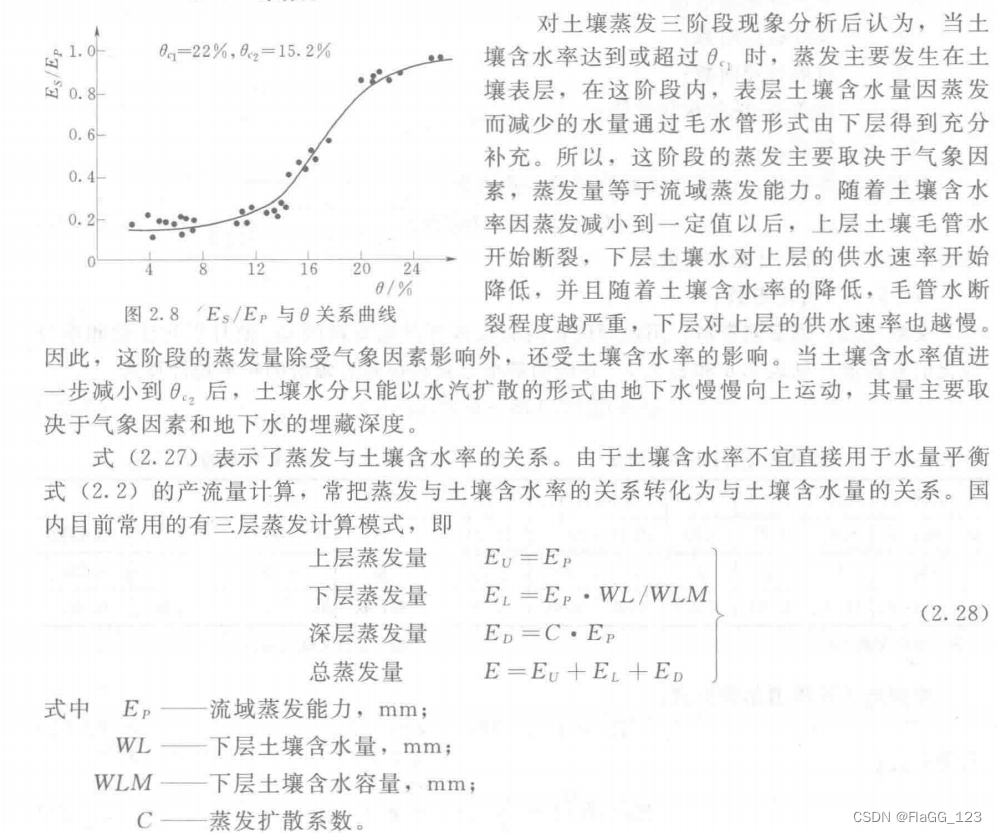 对土壤蒸发三阶段现象分析后认为，当土
壤含水率达到或超过 θc1 时，蒸发主要发生在土
壤表层，在这阶段内，表层土壤含水量因蒸发
而减少的水量通过毛水管形式由下层得到充分
补充。所以，这阶段的蒸发主要取决于气象因
素，蒸发量等于流域蒸发能力。随着土壤含水
率因蒸发减小到一定值以后，上层土壤毛管水
开始断裂，下层土壤水对上层的供水速率开始
降低，并且随着土壤含水率的降低，毛管水断
裂程度越严重，下层对上层的供水速率也越慢。
ES/EP
θc1=22%,θc2=15.2%
1.0
0.8
0.6
0.4
0.2
0
4 8 12 16 20 24
θ/%
图 2.8 ES/EP 与 θ 关系曲线
因此，这阶段的蒸发量除受气象因素影响外，还受土壤含水率的影响。当土壤含水率值进
一步减小到 θc2 后，土壤水分只能以水汽扩散的形式由地下水慢慢向上运动，其量主要取
决于气象因素和地下水的埋藏深度。
式（2.27）表示了蒸发与土壤含水率的关系。由于土壤含水率不宜直接用于水量平衡
式（2.2）的产流量计算，常把蒸发与土壤含水率的关系转化为与土壤含水量的关系。国
内目前常用的有三层蒸发计算模式，即
上层蒸发量 EU=EP
下层蒸发量 EL=EP·WL/WLM
深层蒸发量 ED=C·EP
总蒸发量 E=EU+EL+ED
(2.28)
式中 EP——流域蒸发能力，mm；
WL——下层土壤含水量，mm；
WLM——下层土壤含水容量，mm；
C——蒸发扩散系数。
CSDN @FlaGG_123